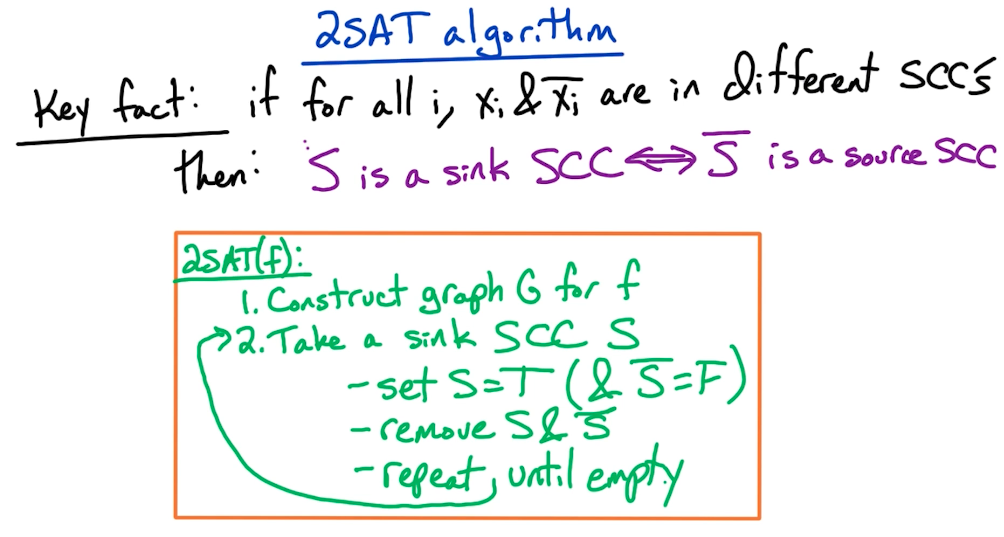 2SAT algorithm
Key fact: if for all i, xᵢ & x̅ᵢ are in different SCC's
then: S is a sink SCC ⟺ S̅ is a source SCC
2SAT(f):
1. Construct graph G for f
2. Take a sink SCC S
- set S=T (& S̅=F)
- remove S & S̅
- repeat, until empty